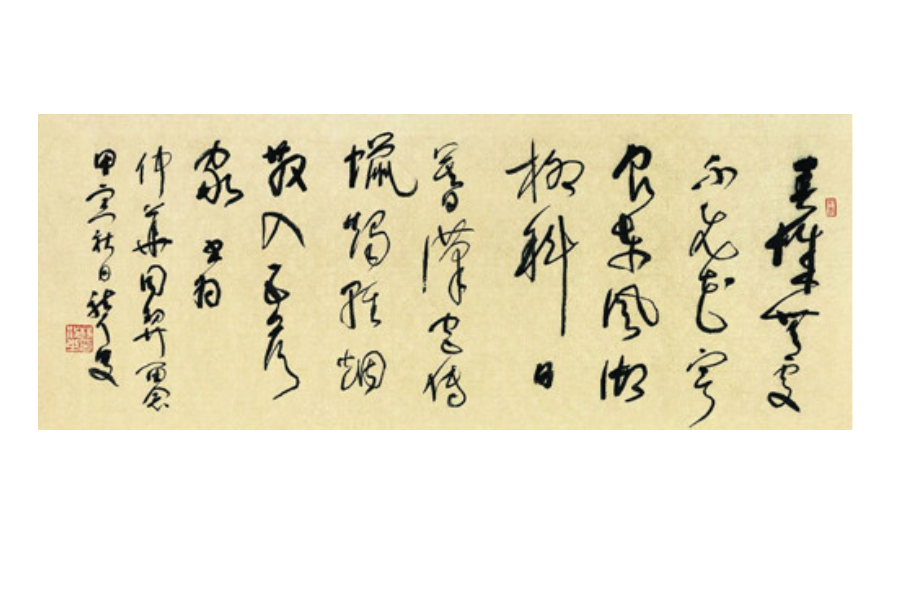 春城無處
不飛花寒
食東風御
柳斜日
暮漢宮傳
蠟燭輕烟
散入五侯
家 書為
仲華同契留念
甲寅秋日